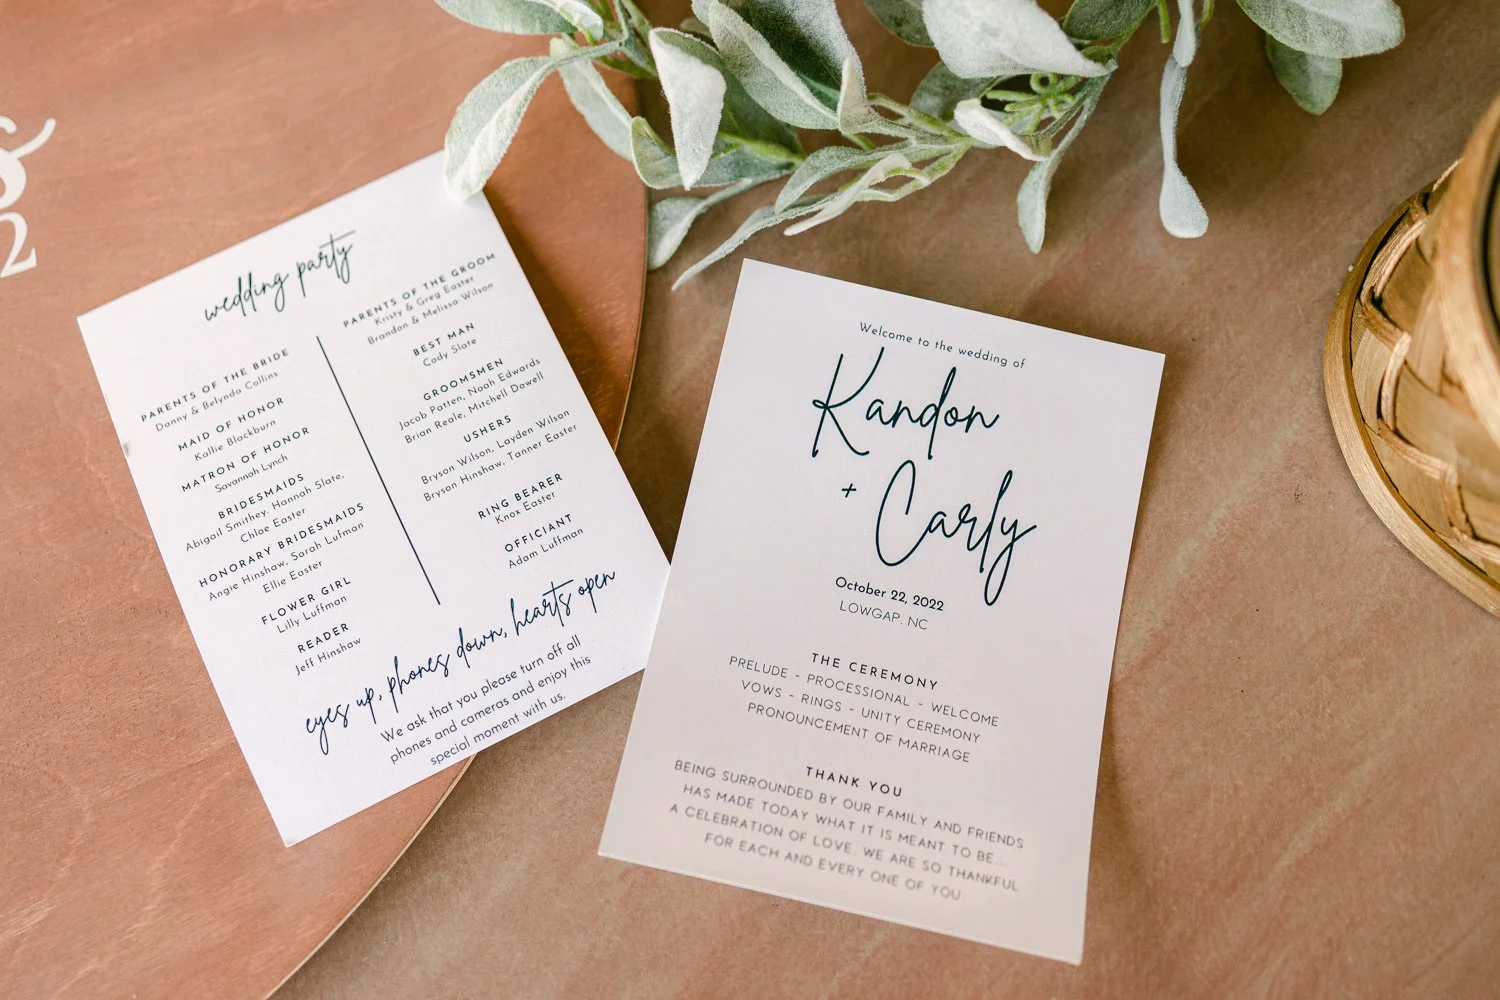 &
2
wedding party
PARENTS OF THE BRIDE
Danny & Belynda Collins
MAID OF HONOR
Kallie Blackburn
MATRON OF HONOR
Savannah Lynch
BRIDESMAIDS
Abigail Smithey, Hannah Slate,
Chloe Easter
HONORARY BRIDESMAIDS
Angie Hinshaw, Sarah Lufman
Ellie Easter
FLOWER GIRL
Lilly Luffman
READER
Jeff Hinshaw
PARENTS OF THE GROOM
Kristy & Greg Easter
Brandon & Melissa Wilson
BEST MAN
Cody Slate
GROOMSMEN
Jacob Patten, Noah Edwards
Brian Reale, Mitchell Dowell
USHERS
Bryson Wilson, Layden Wilson
Bryson Hinshaw, Tanner Easter
RING BEARER
Knox Easter
OFFICIANT
Adam Luffman
eyes up, phones down, hearts open
We ask that you please turn off all
phones and cameras and enjoy this
special moment with us.
Welcome to the wedding of
Kandon
+ Carly
October 22, 2022
LOWGAP, NC
THE CEREMONY
PRELUDE - PROCESSIONAL - WELCOME
VOWS - RINGS - UNITY CEREMONY
PRONOUNCEMENT OF MARRIAGE
THANK YOU
BEING SURROUNDED BY OUR FAMILY AND FRIENDS
HAS MADE TODAY WHAT IT IS MEANT TO BE...
A CELEBRATION OF LOVE. WE ARE SO THANKFUL
FOR EACH AND EVERY ONE OF YOU